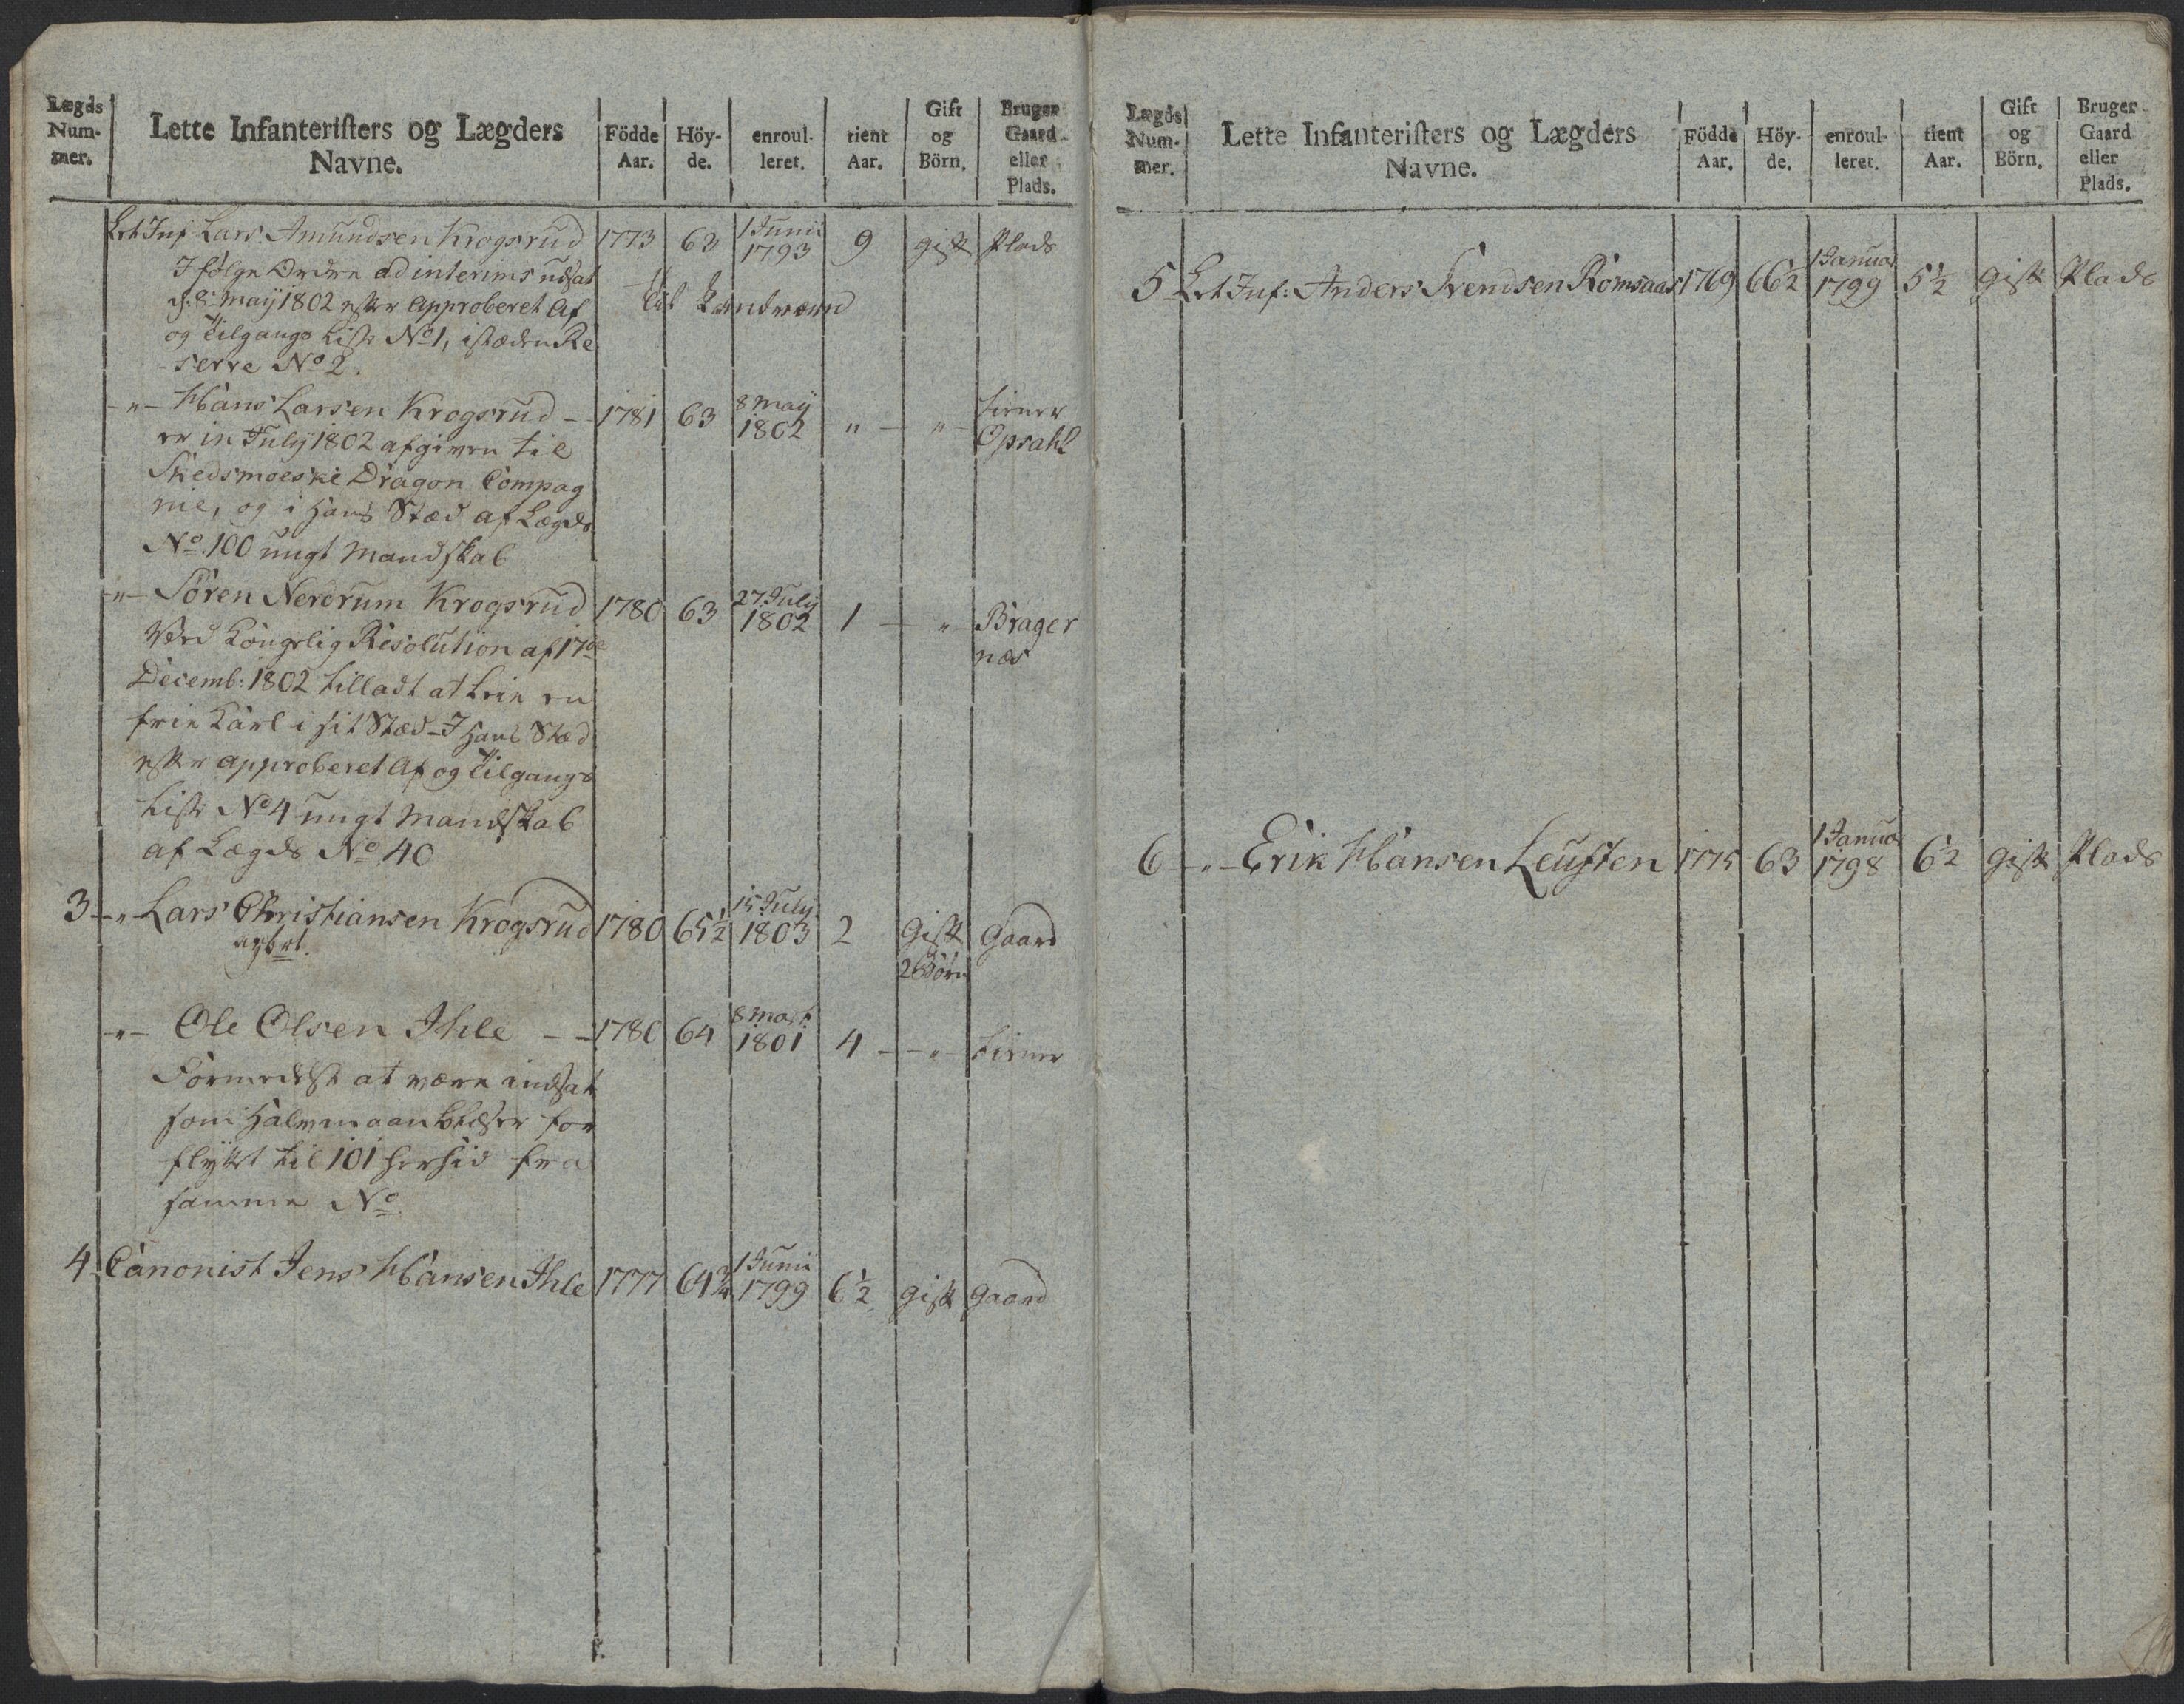 Lægds Num- mer. | Lette Infanteristers og Lægders Navne. | Födde Aar. | Höy- de. | enroul- leret. | tient Aar. | Gift og Börn. | Bruger Gaard eller Plads.
Let Inf Lars Amundsen Krogsrud 1773 63 1 Junii 1793 9 gift Plads
Ifølge Ordre ad interims udsat til Landværn
d: 8 Maij 1802 efter Approberet Af
og Tilgangs Liste No 1, istæden Re
serve No 2.
-"- Hans Larsen Krogsrud - 1781 63 8 Maij 1802 " - " - tiener Opsahl
er in July 1802 afgiven til
Skedsmoeske Dragon Compag
nie, og i hans Stæd af Lægds
No. 100 ungt Mandskab
-"- Sören Nerdrum Krogsrud 1780 63 27 July 1802 1 - " - Brager næs
Ved Kongelig Resolution af 17de
Decemb: 1802 tilladt at leie en
frie Karl i sit Stæd - I hans Stæd
efter approberet Af og Tilgangs
Liste No 4 ungt Mandskab
af Lægds No 40
3 -"- Lars Christiansen Krogsrud 1780 65 1/2 15 July 1803 2 Gift 2 Börn Gaard
-"- Ole Olsen Ihle - - 1780 64 8 Mart 1801 4 - - " - tiener
Formedelst at være andsat
som Halvmaanblæser for
flyttet til 101 hersid fra
samme No
4 Canonist Jens Hansen Ihle 1777 64 3/4 1 Junii 1799 6 1/2 gift Gaard
Lægds Num- mer. | Lette Infanteristers og Lægders Navne. | Födde Aar. | Höy- de. | enroul- leret. | tient Aar. | Gift og Börn. | Bruger Gaard eller Plads.
5 Let Inf: Anders Svendsen Romsaas 1769 66 1/2 1 Januar 1799 5 1/2 Gift Plads
6 -"- Erik Hansen Leusten 1775 63 1 Januar 1798 6 1/2 Gift Plads